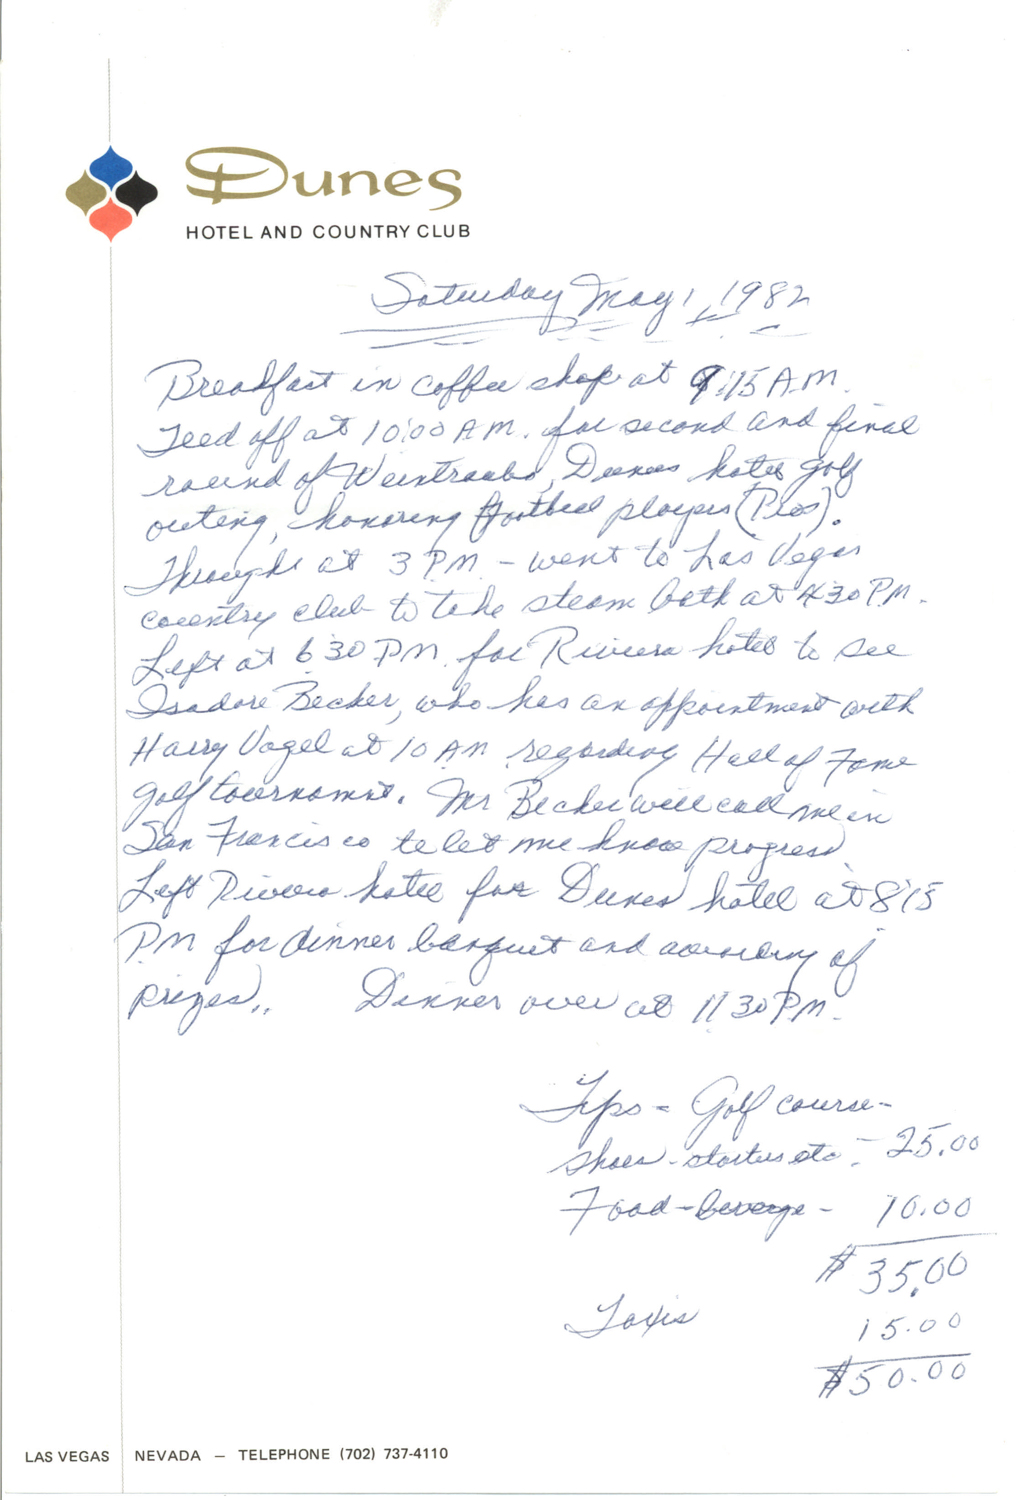 Dunes
HOTEL AND COUNTRY CLUB
Saturday May 1, 1982
Breakfast in coffee shop at 9:15 A.M.
Teed off at 10:00 A.M. for second and final
round of Weintraubs, Dunes hotel golf
outing, honoring football players (Pros).
Through at 3 P.M - went to Las Vegas
country club to take steam bath at 4:30 P.M.
Left at 6:30 P.M. for Riviera hotel to see
Isadore Becker, who has an appointment with
Harry Vogel at 10 AM regarding Hall of Fame
golf tournamnt. Mr Becker will call me in
San Francisco to let me know progress.
Left Riviera hotel for Dunes hotel at 8:15
P.M for dinner banquet and awarding of
prizes.. Dinner over at 11:30 P.M.
Tips - Golf course -
shoes - starters etc - 25.00
Food - beverge - 10.00
$ 35.00
Taxis 15.00
$50.00
LAS VEGAS NEVADA — TELEPHONE (702) 737-4110